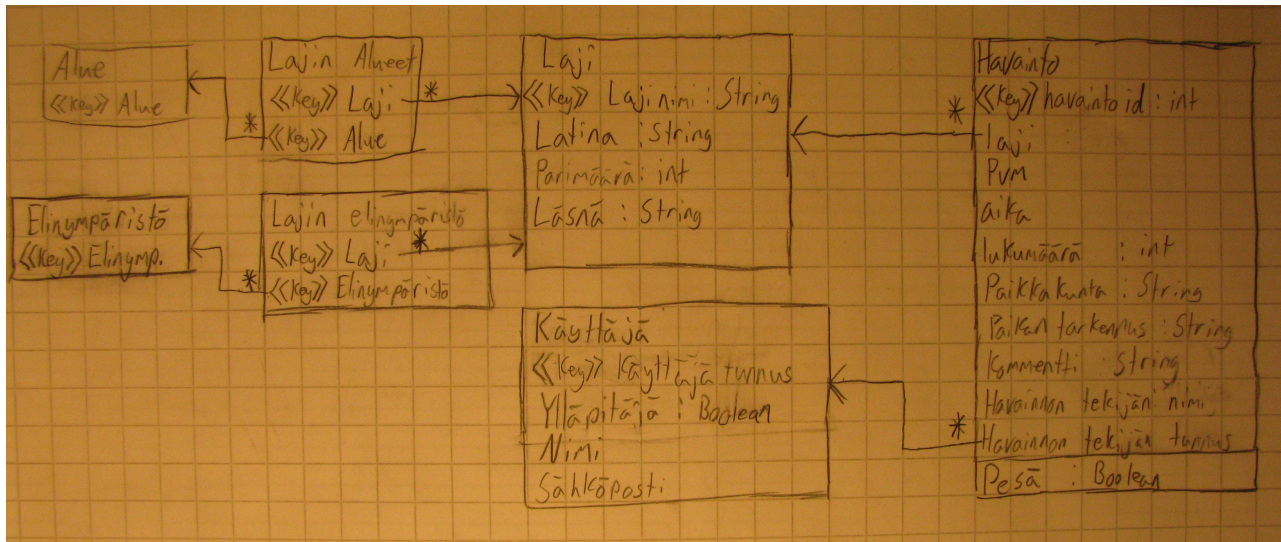 Alue
<<Key>> Alue
Lajin Alueet
<<Key>> Laji *
* <<Key>> Alue
Elinympäristö
<<Key>> Elinymp.
Lajin elinympäristö
<<Key>> Laji *
* <<Key>> Elinympäristö
Laji
<<Key>> Lajinimi : String
Latina : String
Parimäärä : int
Läsnä : String
Käyttäjä
<<Key>> Käyttäjätunnus
Ylläpitäjä : Boolean
Nimi
Sähköposti
Havainto
<<Key>> havaintoid : int
* laji :
Pvm
aika
lukumäärä : int
Paikkakunta : String
Paikan tarkennus : String
Kommentti : String
Havainnon tekijän nimi
* Havainnon tekijän tunnus
Pesä : Boolean